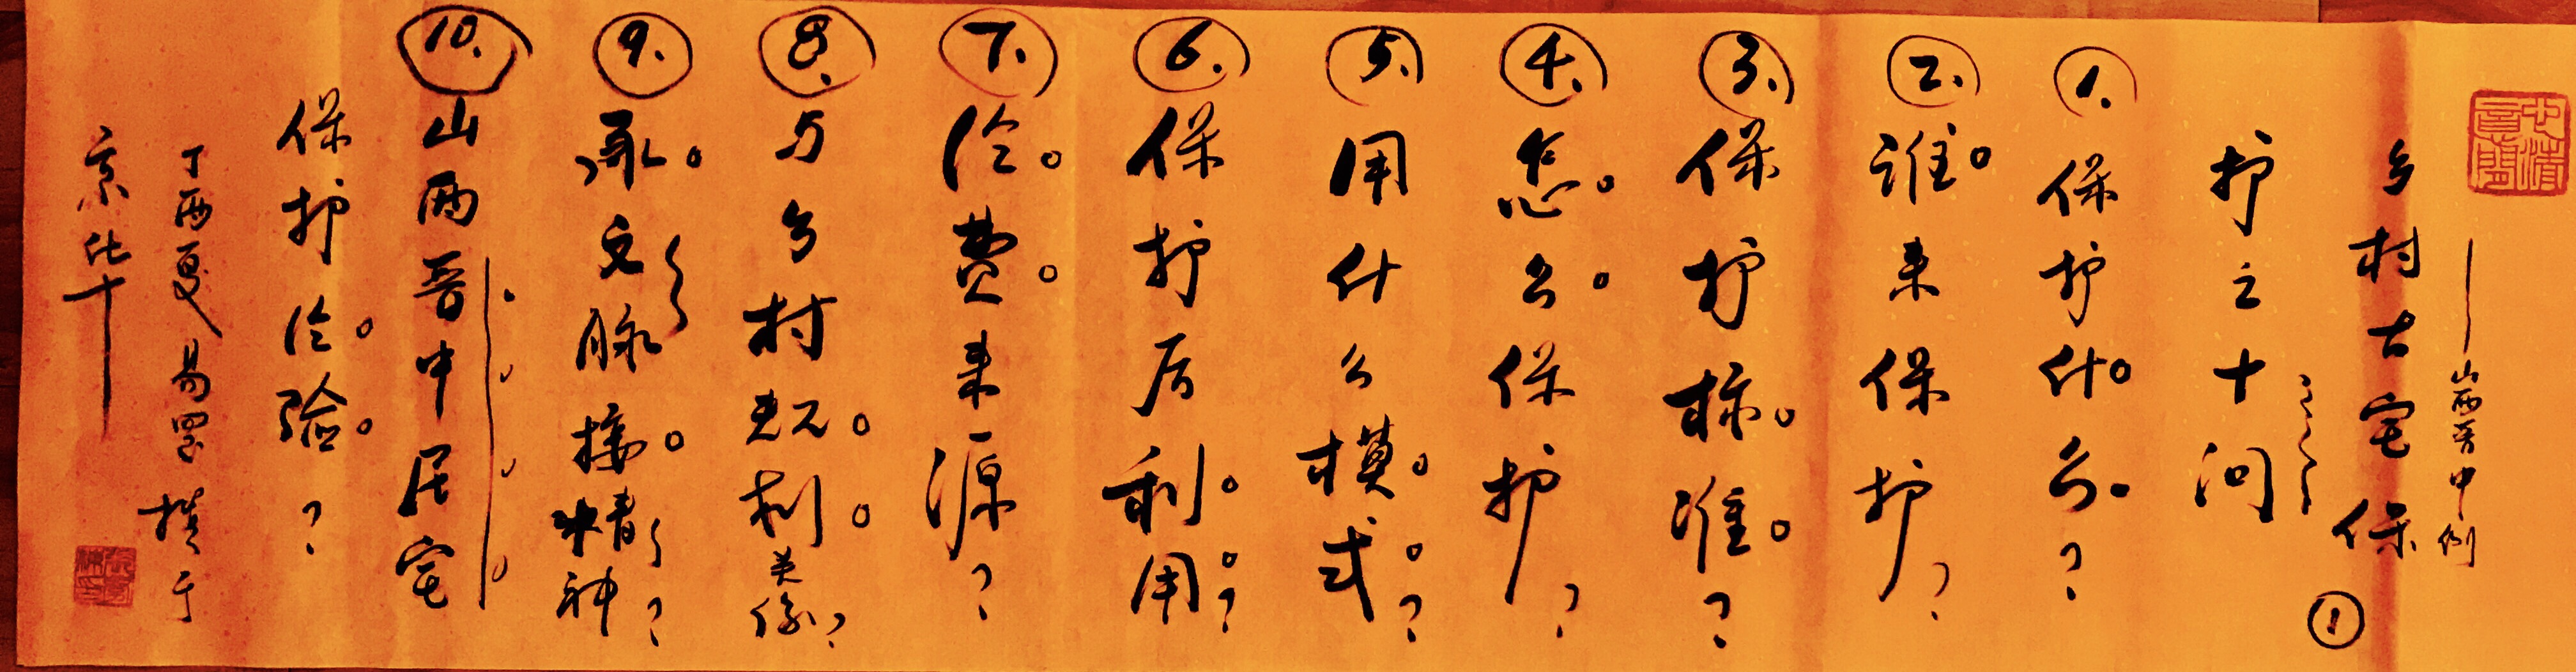 乡村古宅保
护之十问
——山西晋中例
①
1.
保护什么?
2.
谁来保护?
3.
保护标准?
4.
怎么保护?
5.
用什么模式?
6.
保护后利用?
7.
经费来源?
8.
与乡村规划关系?
9.
承文脉接精神?
10.
山西晋中居宅
保护经验?
丁酉夏易罡撰于
京化十